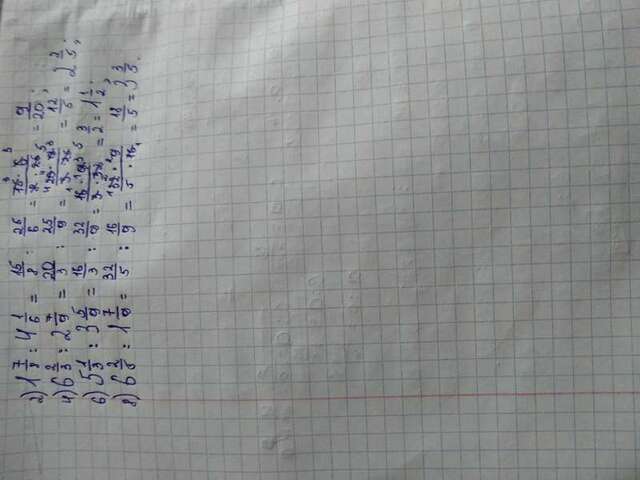 2) 1 7/8 : 4 1/6 = 15/8 : 25/6 = 15 · 6 / 8 · 25 = 9/20;
4) 6 2/3 : 2 7/9 = 20/3 : 25/9 = 20 · 9 / 3 · 25 = 12/5 = 2 2/5;
6) 5 1/3 : 3 5/9 = 16/3 : 32/9 = 16 · 9 / 3 · 32 = 3/2 = 1 1/2;
8) 6 2/5 : 1 7/9 = 32/5 : 16/9 = 32 · 9 / 5 · 16 = 18/5 = 3 3/5.